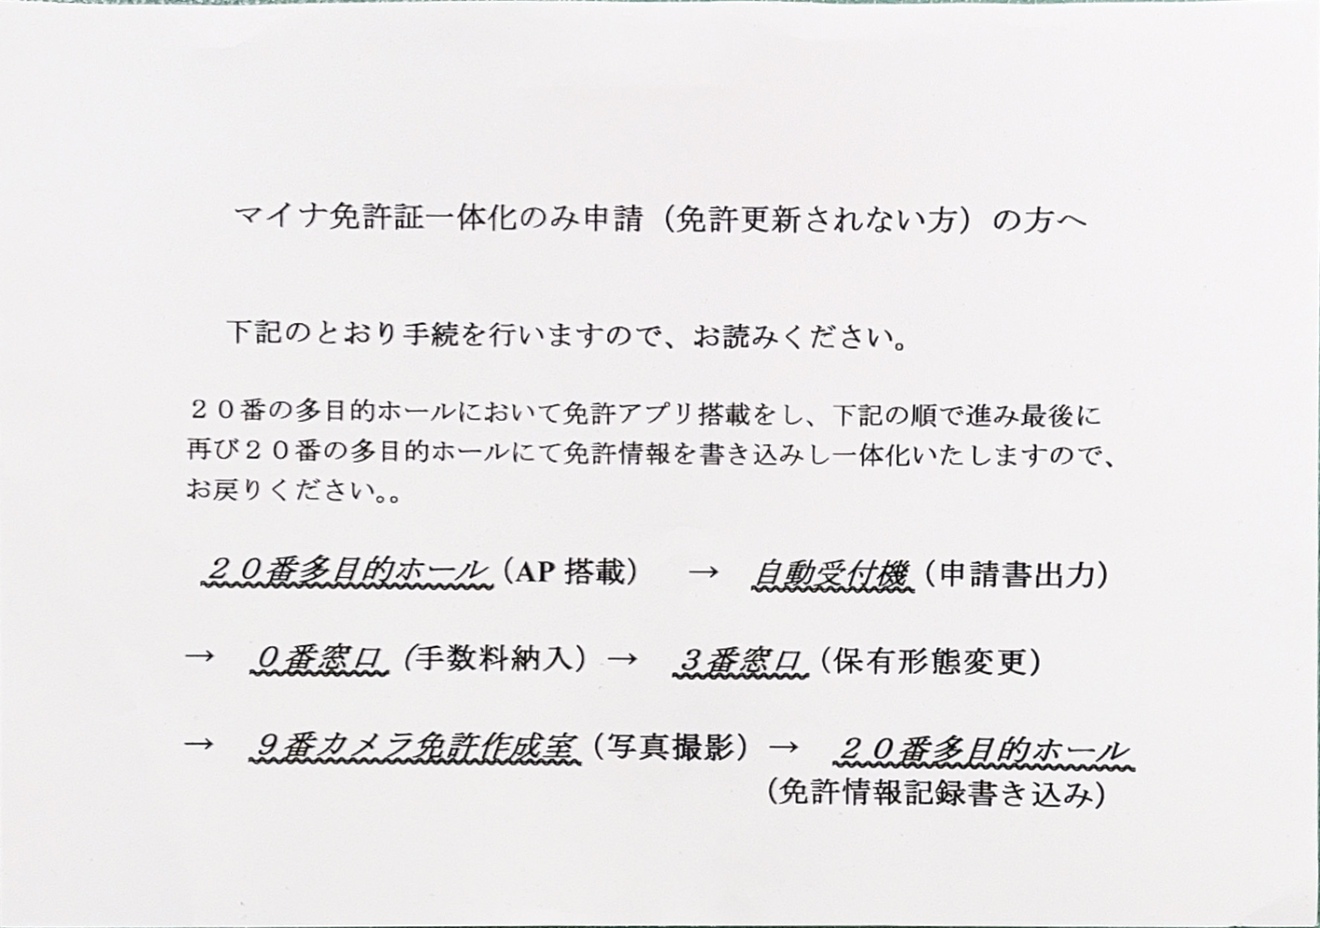 マイナ免許証一体化のみ申請（免許更新されない方）の方へ
下記のとおり手続を行いますので、お読みください。
２０番の多目的ホールにおいて免許アプリ搭載をし、下記の順で進み最後に
再び２０番の多目的ホールにて免許情報を書き込みし一体化いたしますので、
お戻りください。。
２０番多目的ホール（AP 搭載）　→　自動受付機（申請書出力）
→　０番窓口（手数料納入）→　３番窓口（保有形態変更）
→　９番カメラ免許作成室（写真撮影）→　２０番多目的ホール
（免許情報記録書き込み）